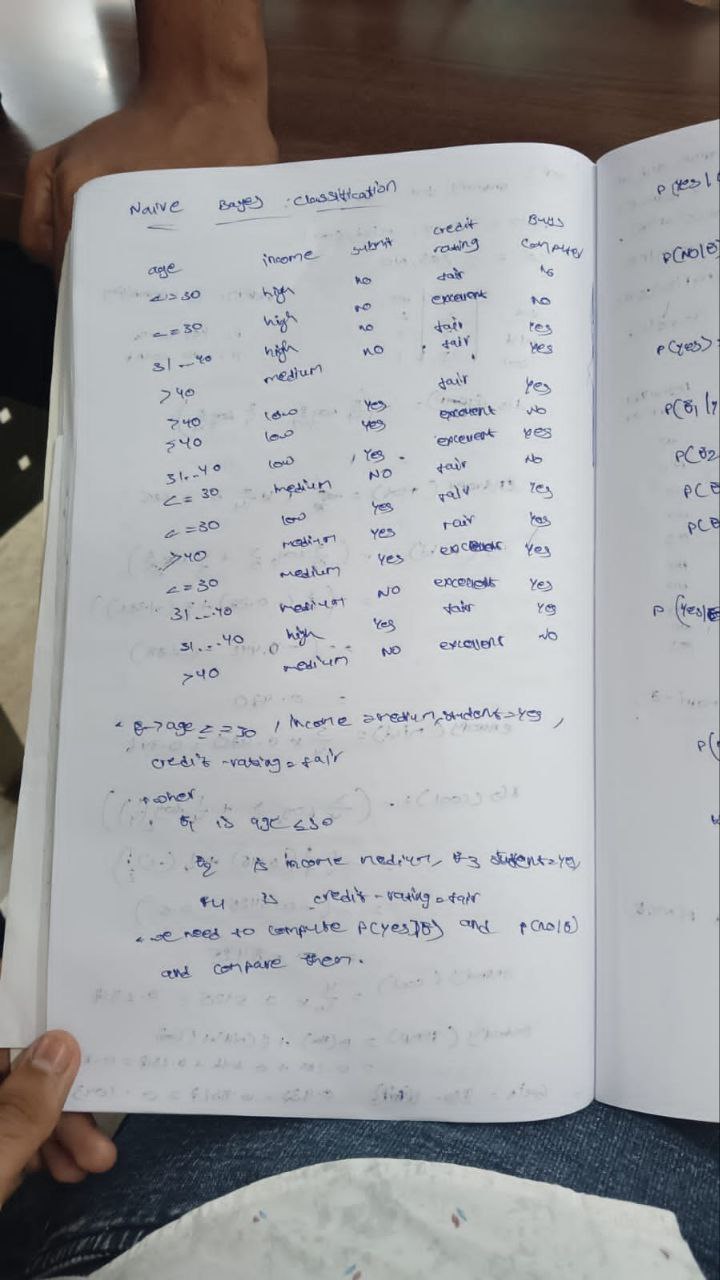 Naive Bayes Classification
age income submit credit rating Buys Computer
<=30 high no fair no
<=30 high no excellent no
31...40 high no fair yes
>40 medium no fair yes
>40 low yes fair yes
>40 low yes excellent no
31...40 low yes excellent yes
<=30 medium NO fair no
<=30 low yes fair yes
>40 medium yes fair yes
<=30 medium yes excellent yes
31...40 medium NO excellent yes
31...40 high yes fair yes
>40 medium NO excellent no
E->age <=30, income =medium, student=yes,
credit-rating=fair
E1 is age <=30
E2 is income medium, E3 student=yes
E4 is credit-rating=fair
we need to compute P(yes|E) and P(no|E)
and compare them.
P(yes|
P(NO|E)
P(yes)=
P(E1|y
P(E2
P(E
P(E
P(yes|E
P(